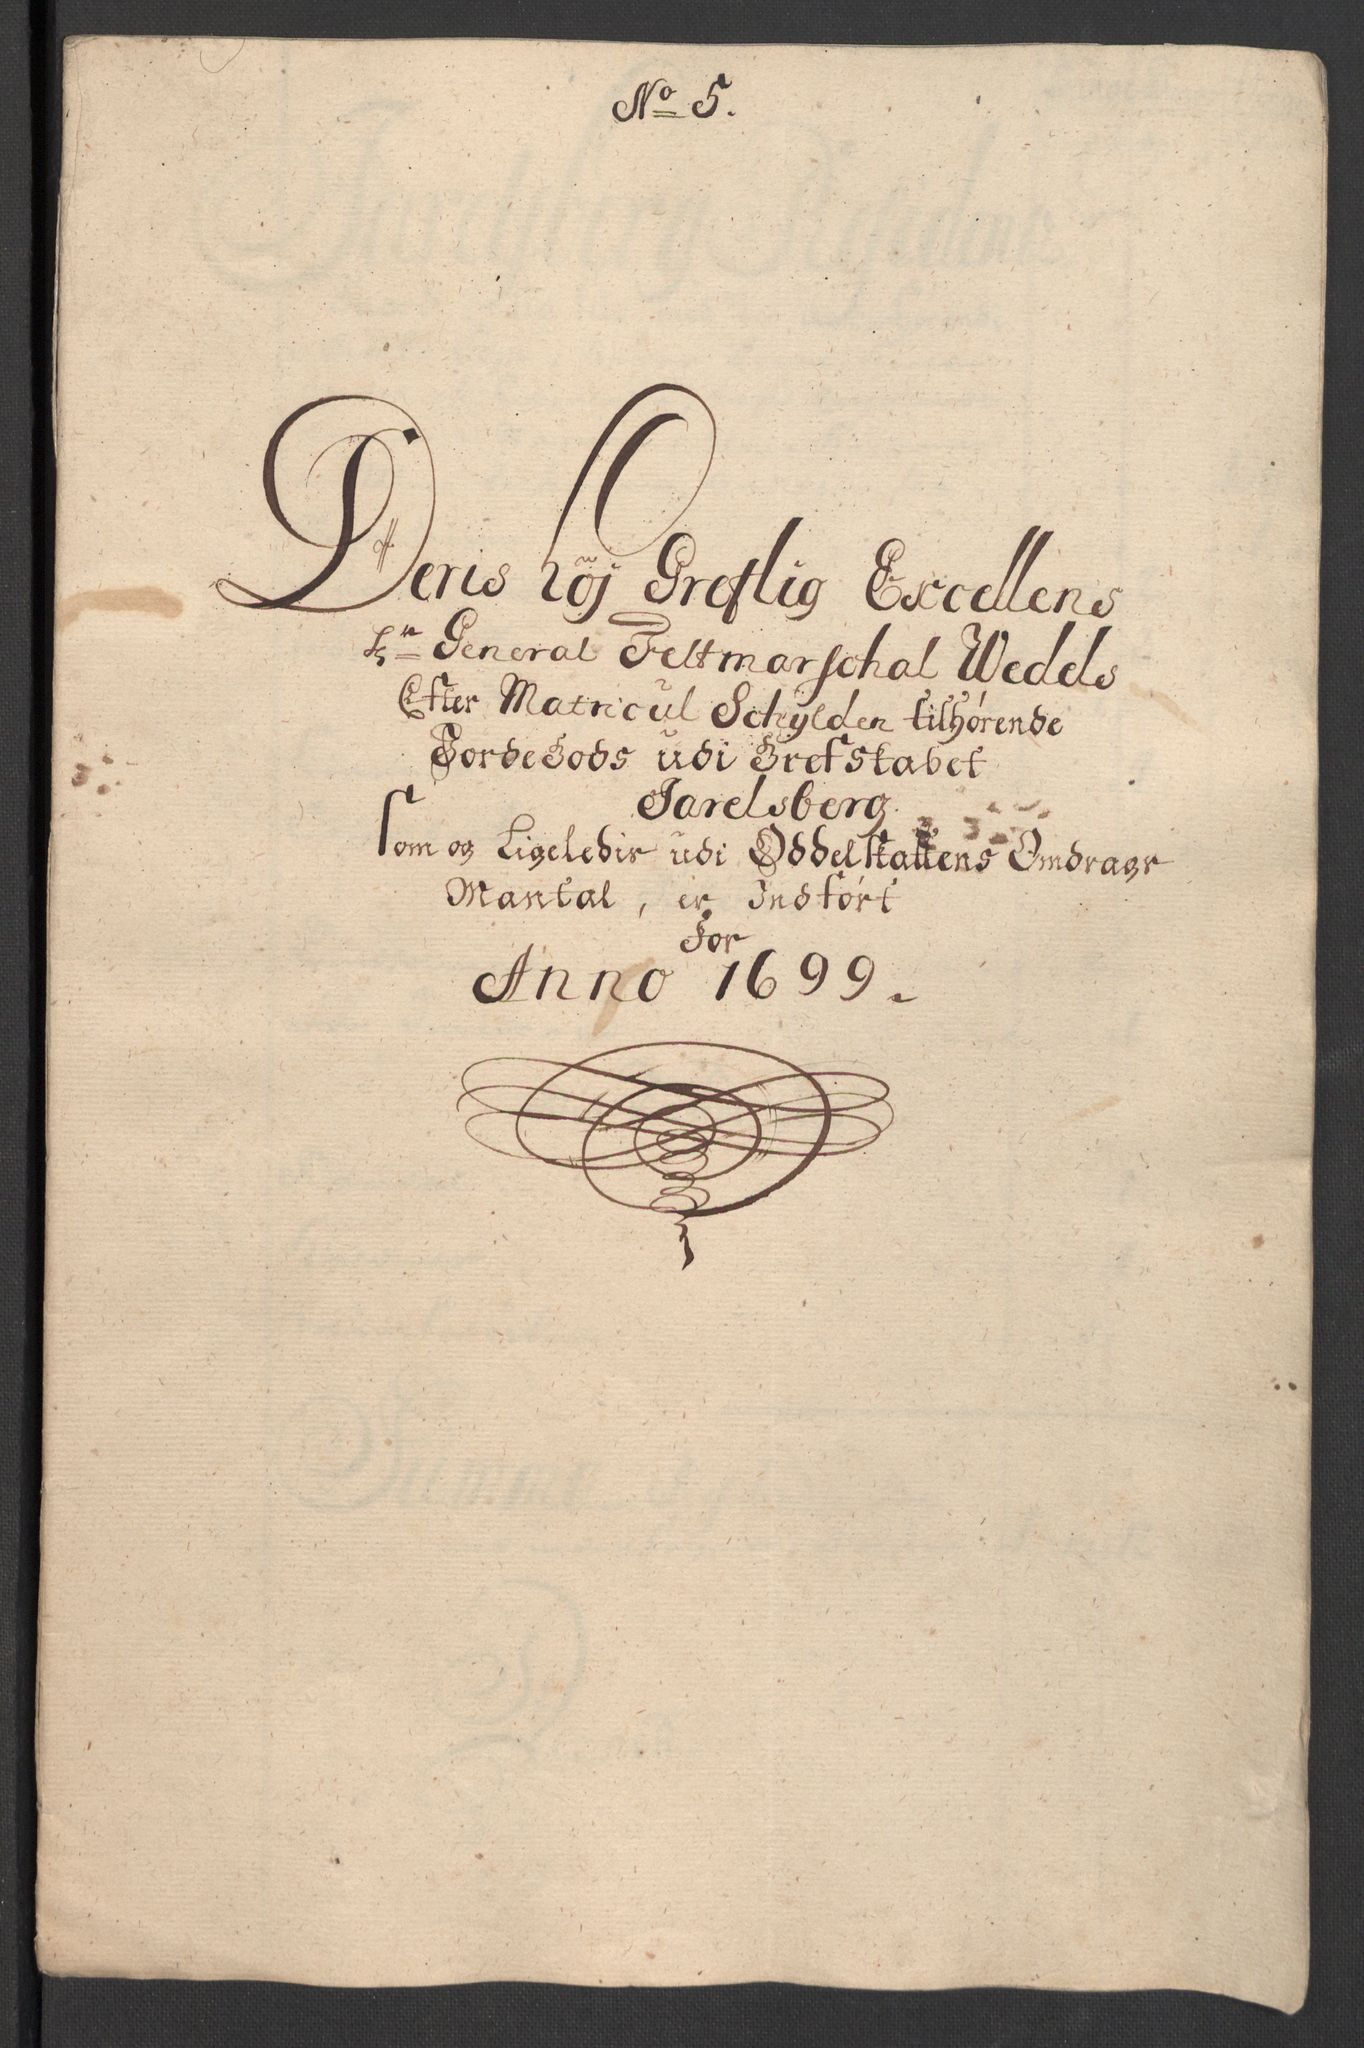 No 5.
Deris höj Greflig Excellens
Hr General Feltmarschal Wedels
Efter Matricul Schylden tilhørende
Jordegods udi Grefskabet
Jarelsberg
Som og Ligeledis udi Oddelskattens Omdragr
Mantal, er Indført
For
Anno 1699.